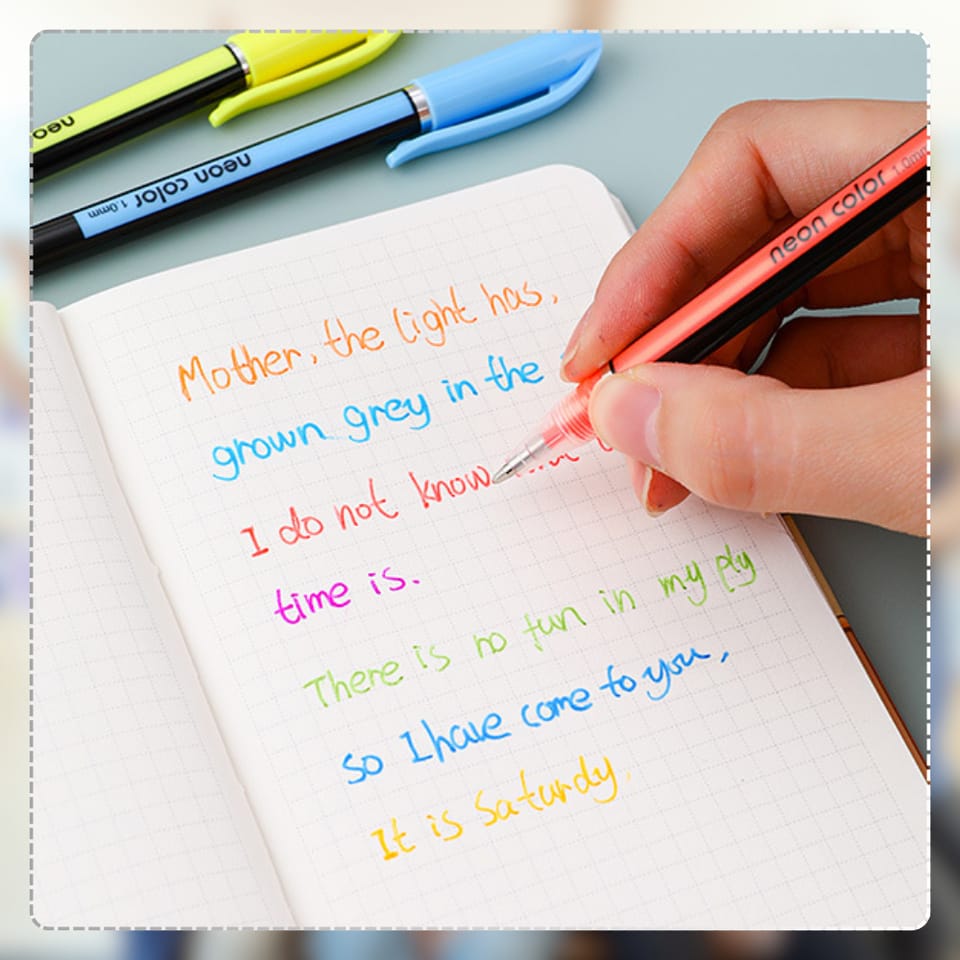 neon
neon color 1.0mm
neon color 1.0mm
Mother, the light has,
grown grey in the
I do not know
time is.
There is no fun in my ply
so I have come to you,
It is Saturdy.